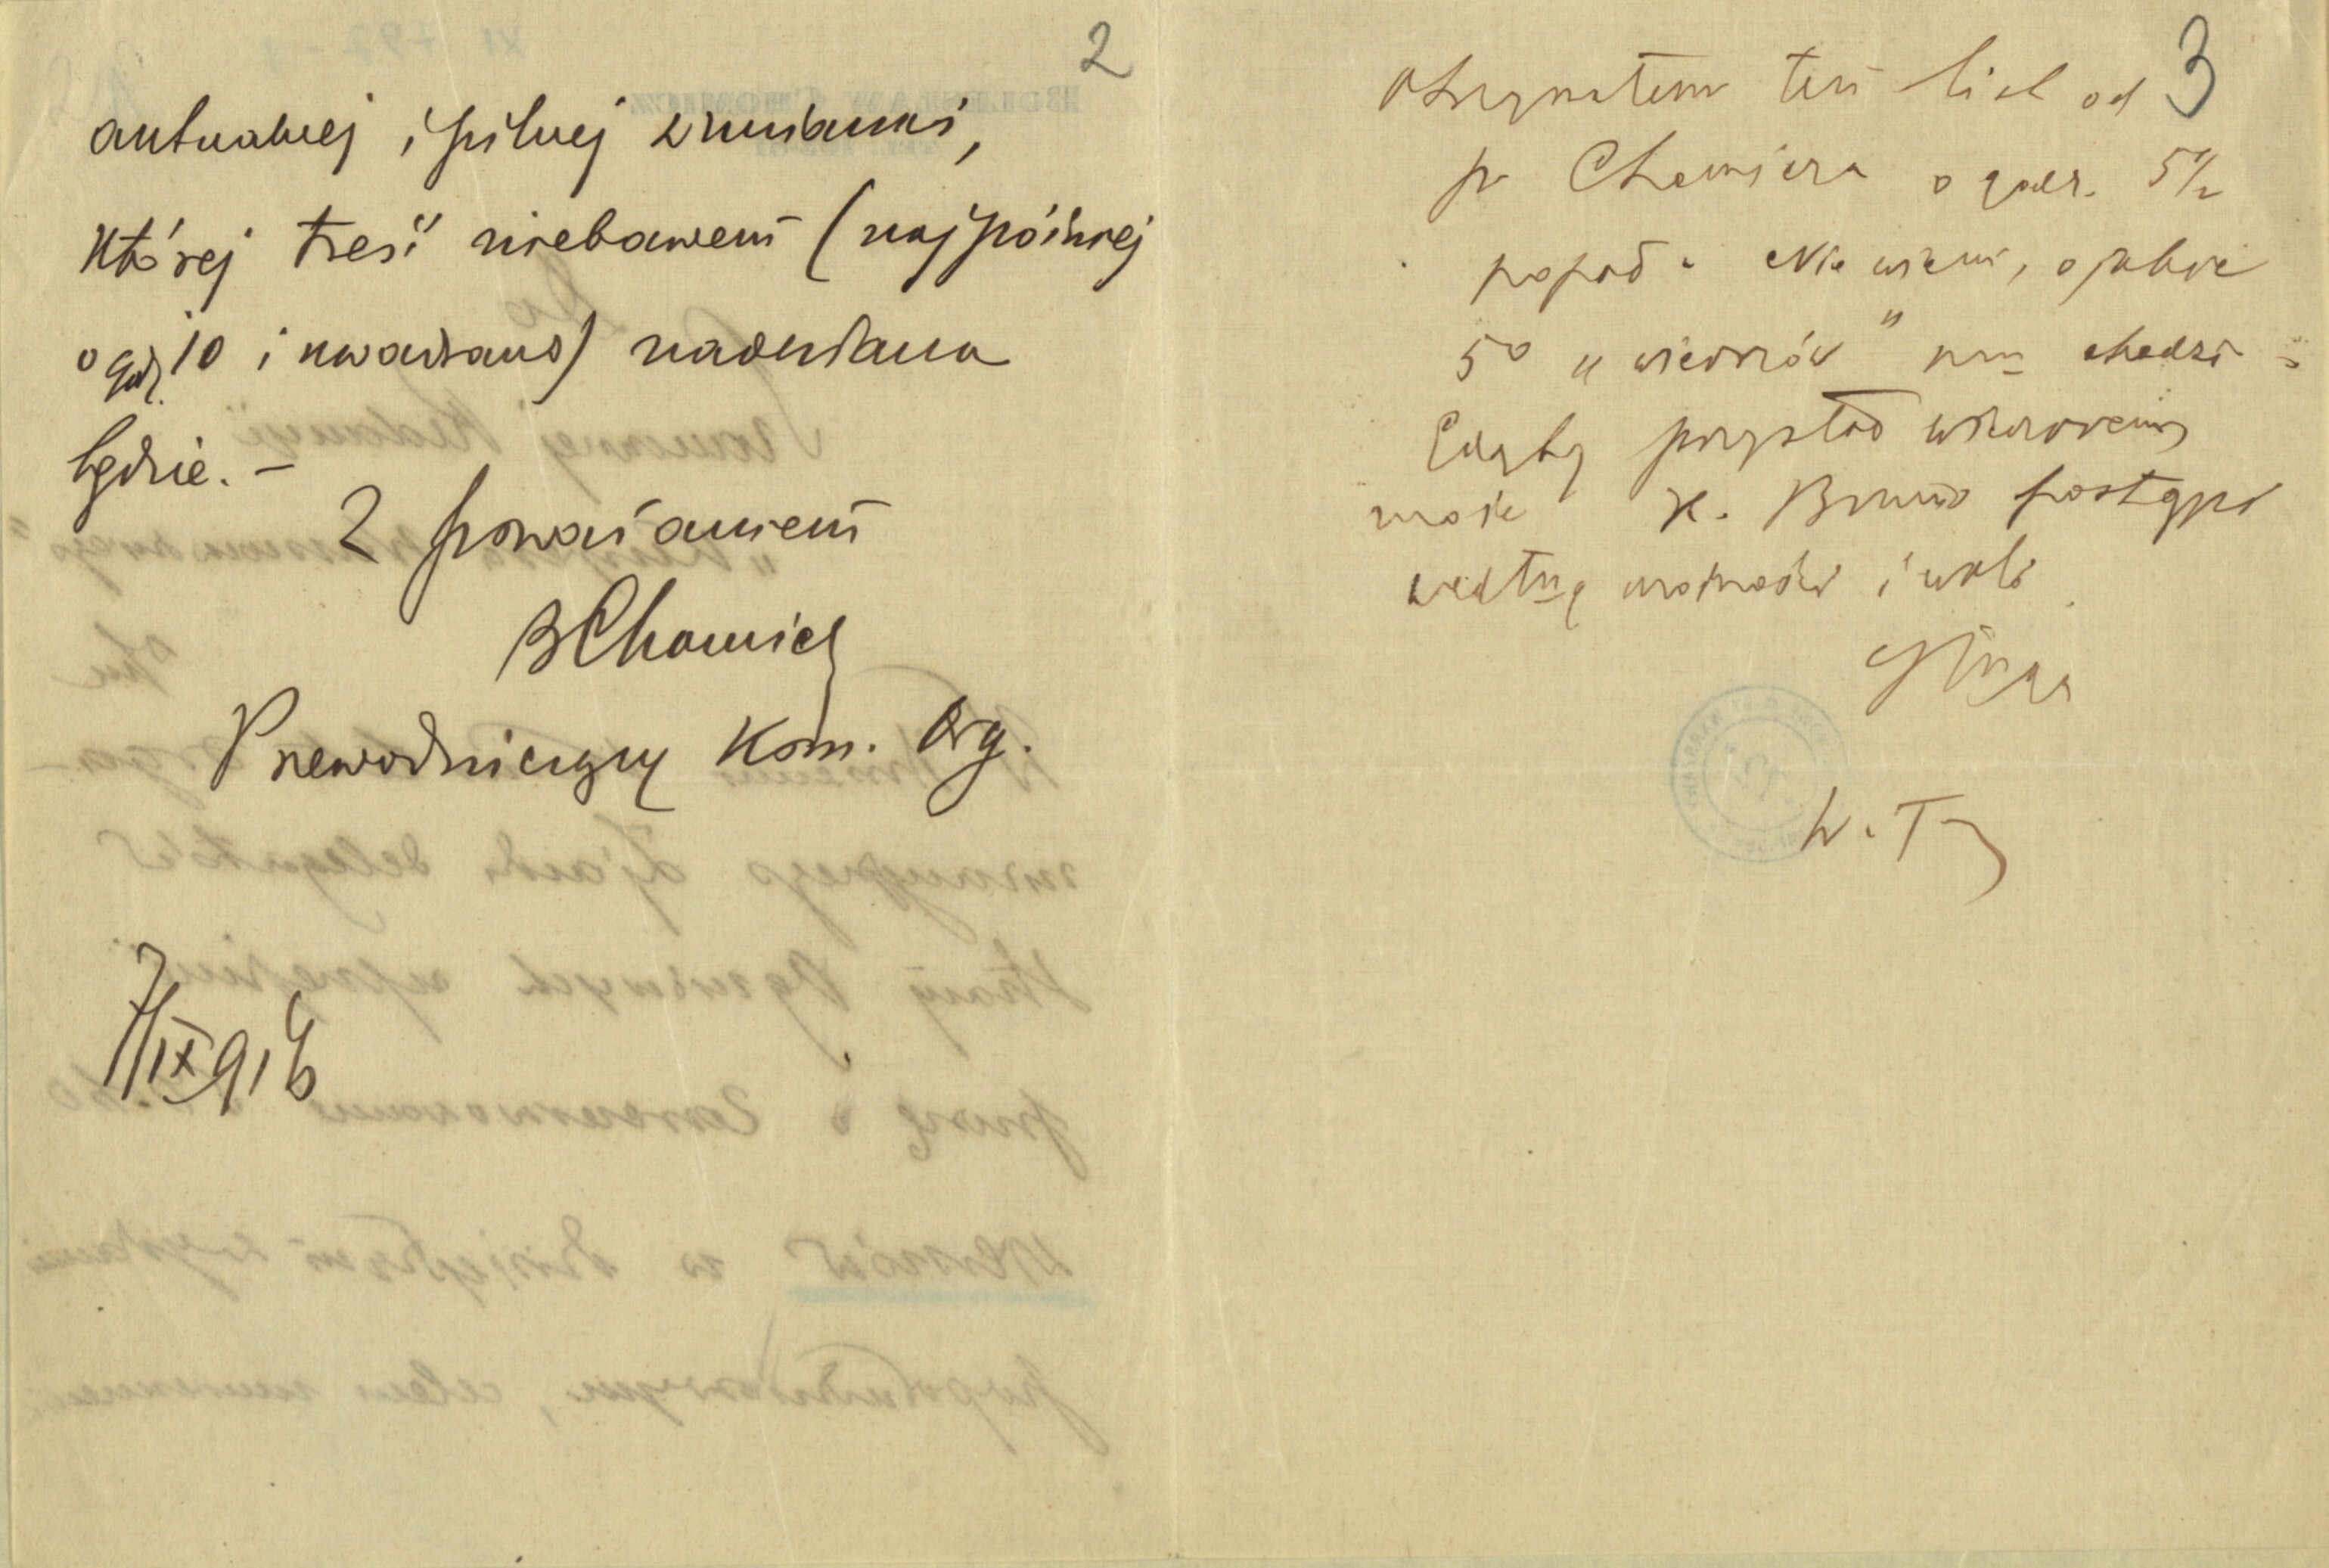 2
aktualnej i pilnej wzmianki,
której treść niebawem (najpóźniej
o godz. 10 i kwadrans) nadesłana
będzie. –
Z poważaniem
BChomicz
Przewodniczący Kom. Org.
7/IX 916
3
Otrzymałem ten list od
p. Chomicza o godz. 5 1/2
popoł. Nie wiem, o jakie
50 „wierszów" mu chodzi
Gdyby przysłał wieczorem
może K. Bruno postąpi
według możności i woli
W. T